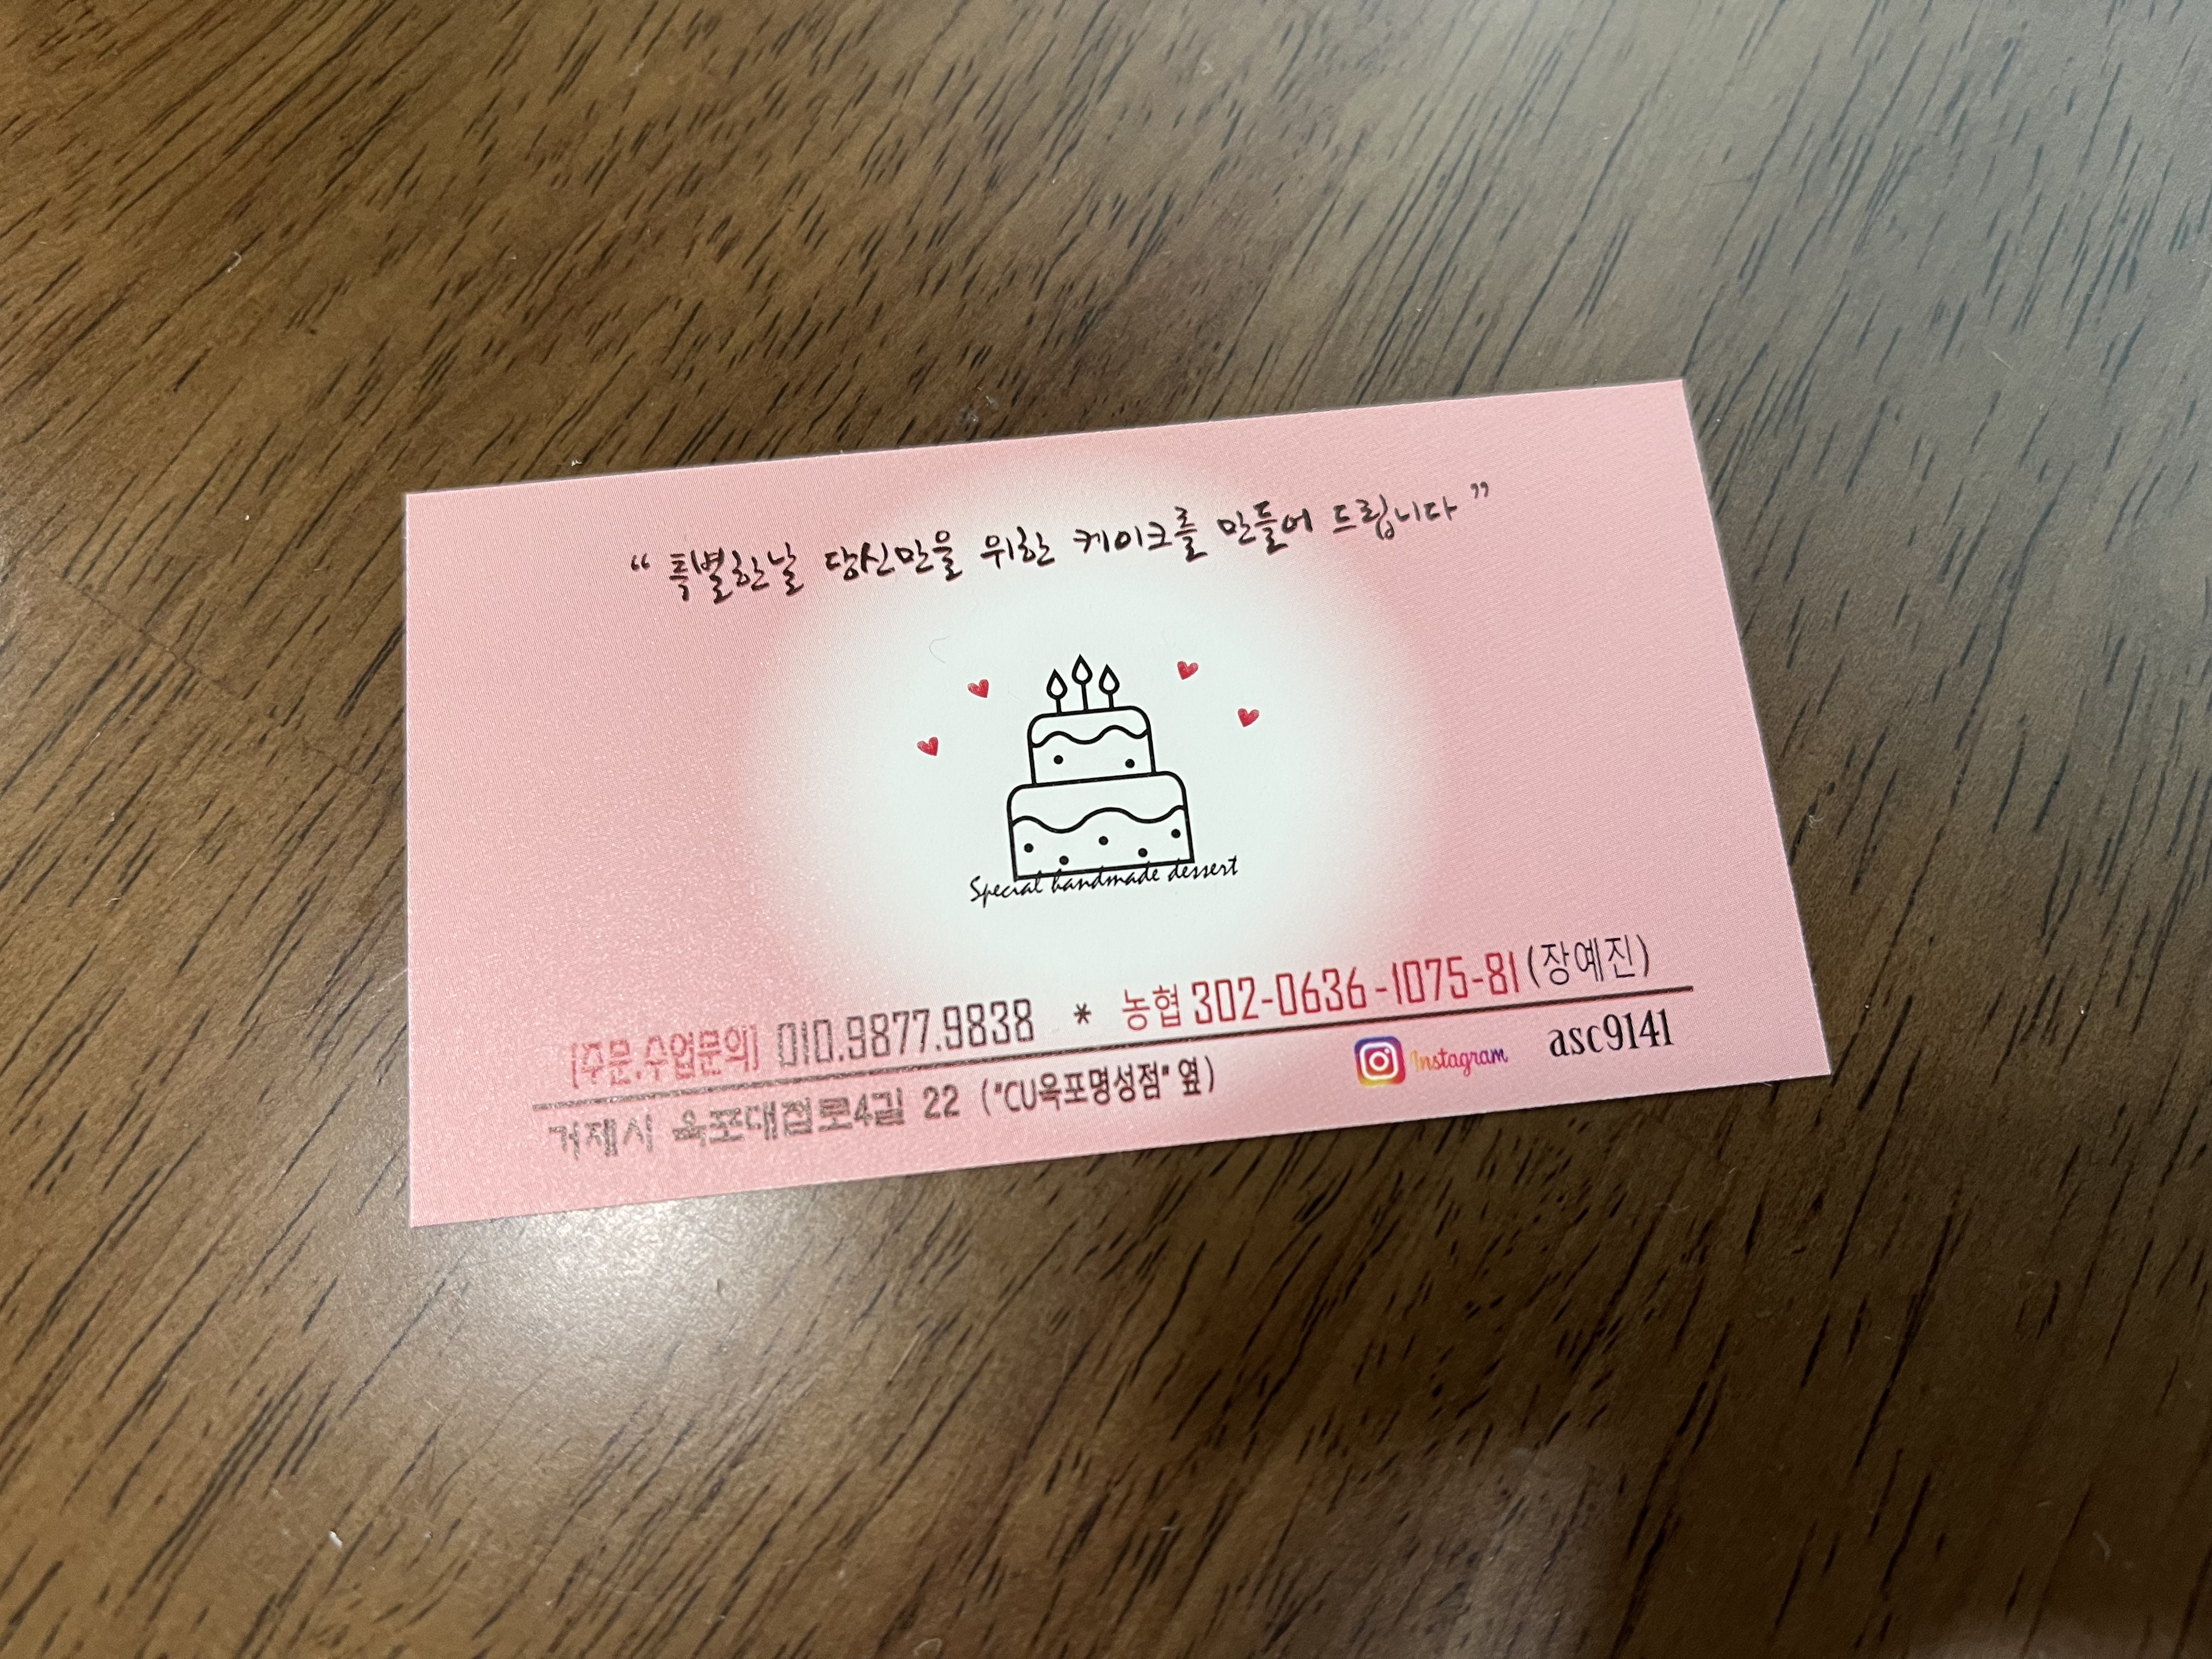 “ 특별한날 당신만을 위한 케이크를 만들어 드립니다 ”
Special handmade dessert
[주문.수업문의] 010.9877.9838 * 농협 302-0636-1075-81 (장예진)
거제시 옥포대첩로4길 22 ("CU옥포명성점" 옆) Instagram asc9141